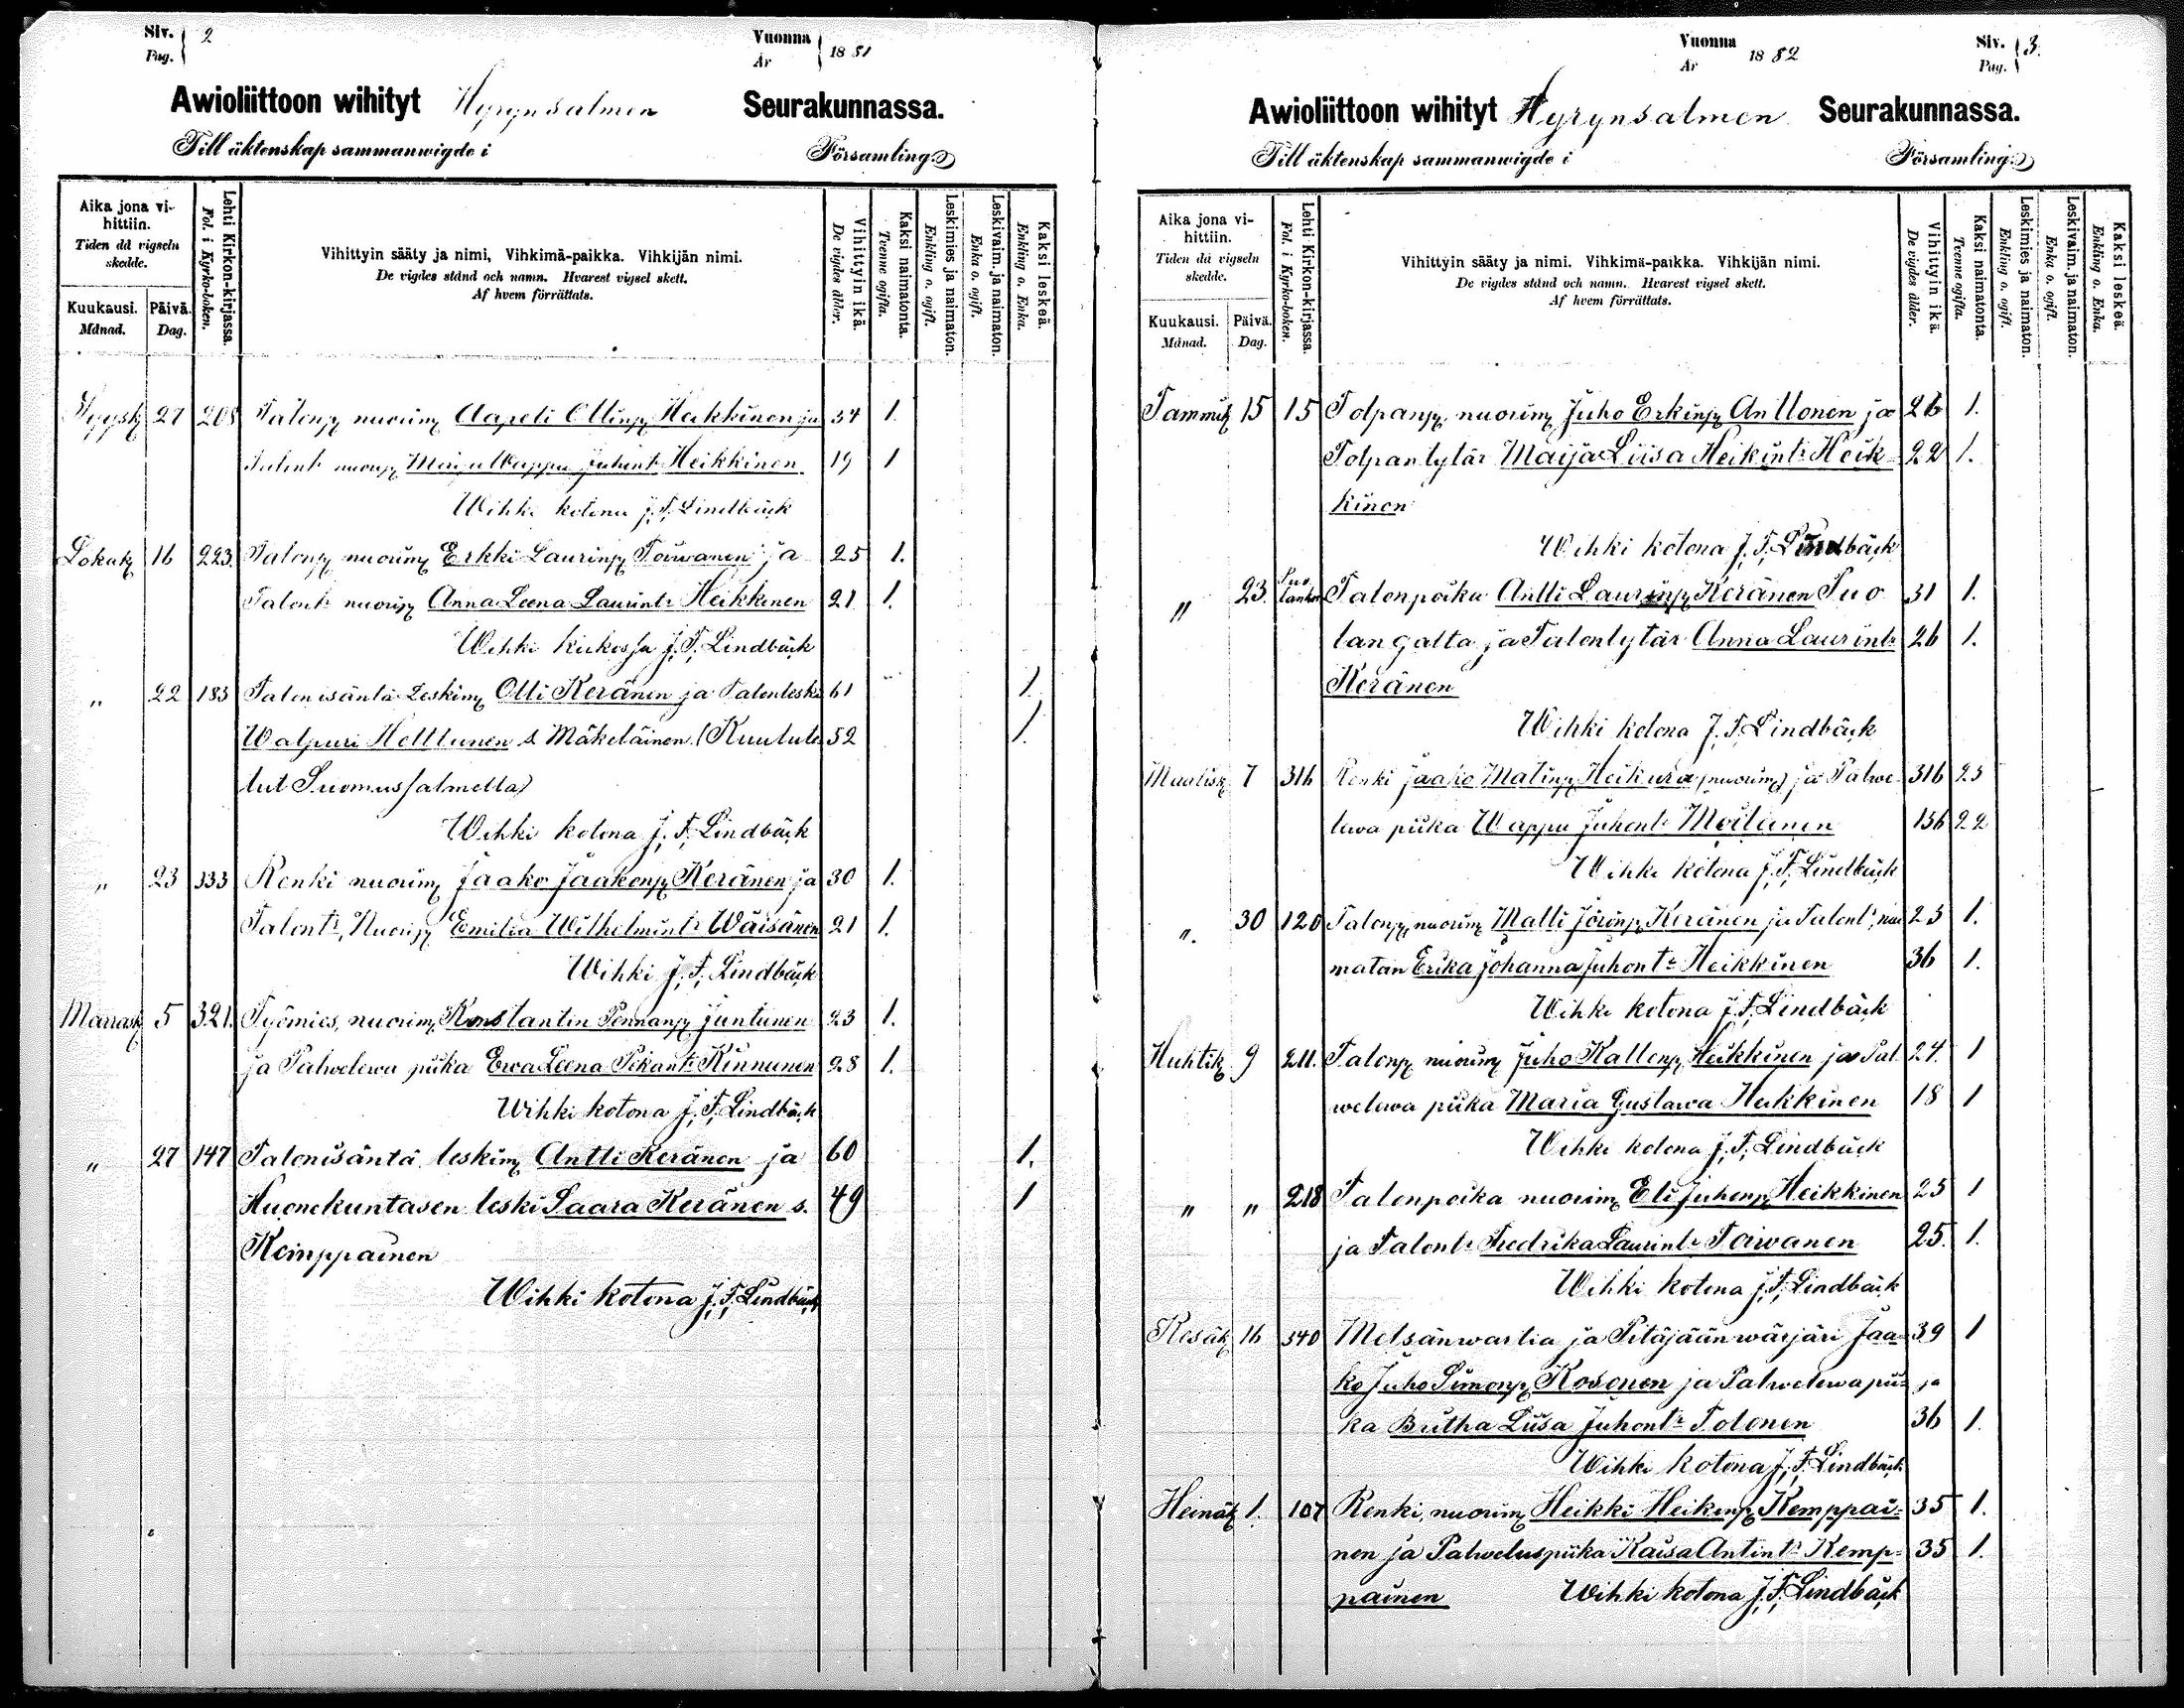 Siv. Pag. 2
Vuonna År 1881
Awioliittoon wihityt Hyrynsalmen Seurakunnassa.
Till äktenskap sammanwigde i Församling
Aika jona vihittiin.
Tiden då vigseln skedde.
Kuukausi. Månad.
Päivä. Dag.
Lehti Kirkon-kirjassa. Fol. i Kyrko-boken.
Vihittyin sääty ja nimi, Vihkimä-paikka. Vihkijän nimi.
De vigdes stånd och namn. Hvarest vigsel skett.
Af hvem förrättats.
Vihittyin ikä. De vigdes ålder.
Kaksi naimatonta. Tvenne ogifta.
Leskimies ja naimaton. Enkling o. ogift.
Leskivaim. ja naimaton. Enka o. ogift.
Kaksi leskeä. Enkling o. Enka.
Syysk 27 208 Talonp nuorim Aapeli Ollinp Heikkinen ja 34 1.
Talont nuorip Maija Wappu Juhont Heikkinen 19 1
Wihki kotona J. F. Lindbäck
Lokak 16 223. Talonp nuorim Erkki Laurinp Toiwanen ja 25 1.
Talont nuorip Anna Leena Laurint Heikkinen 21 1.
Wihki kirkossa J. F. Lindbäck
" 22 183 Talon isäntä Leskim Olli Keränen ja Talonleski 61 1.
Walpuri Helttunen s. Mäkeläinen (Kuulute 52 1.
tut Suomussalmella)
Wihki kotona J. F. Lindbäck
" 23 333 Renki nuorim Jaako Jaakonp Keränen ja 30 1.
Talontr, Nuorip Emilia Wilhelmintr Wäisänen 21 1.
Wihki J. F. Lindbäck
Marrask 5 321. Työmies, nuorim, Konstantin Pennanp Juntunen 23 1.
ja Palwelewa piika Ewa Leena Pekantr Kinnunen 28 1.
Wihki kotona J. F. Lindbäck
" 27 147 Talonisäntä leskim Antti Keränen ja 60 1.
Huonekuntasen leski Saara Keränen s. 49 1
Kemppainen
Wihki kotona J. F. Lindbäck
Vuonna År 1882
Siv. Pag. 3.
Awioliittoon wihityt Hyrynsalmen Seurakunnassa.
Till äktenskap sammanwigde i Församling
Aika jona vihittiin.
Tiden då vigseln skedde.
Kuukausi. Månad.
Päivä. Dag.
Lehti Kirkon-kirjassa. Fol. i Kyrko-boken.
Vihittyin sääty ja nimi. Vihkimä-paikka. Vihkijän nimi.
De vigdes stånd och namn. Hvarest vigsel skett.
Af hvem förrättats.
Vihittyin ikä. De vigdes ålder.
Kaksi naimatonta. Tvenne ogifta.
Leskimies ja naimaton. Enkling o. ogift.
Leskivaim. ja naimaton. Enka o. ogift.
Kaksi leskeä. Enkling o. Enka.
Tammik 15 15 Tolpanp. nuorim Juho Erkinp Anttonen ja 26 1.
Tolpantytär Maija Liisa Heikintr Heik- 22 1.
kinen
Wihki kotona J. F. Lindbäck
" 23. Talonpoika Antti Laurinp Keränen Puo 31 1.
langalta ja Talontytär Anna Laurintr 26 1.
Keränen
Wihki kotona J. F. Lindbäck
Maalisk 7 316 Renki Jaako Matinp Heikura (nuorim) ja Palwe- 316 25
lewa piika Wappu Juhontr Moilanen 136 22
Wihki kotona J. F. Lindbäck
". 30 120 Talonp, nuorim Matti Jörinp Keränen ja Talontr, nai 25 1.
matan Erika Johanna Juhontr Heikkinen 36 1.
Wihki kotona J. F. Lindbäck
Huhtik 9 211. Talonp nuorim Juho Kallenp Heikkinen ja Pal 24. 1
welewa piika Maria Gustawa Heikkinen 18 1
Wihki kotona J. F. Lindbäck
" " 218 Talonpoika nuorim Eli Juhonp Heikkinen 25 1
ja Talontr Fredrika Laurintr Toiwanen 25. 1.
Wihki kotona J. F. Lindbäck
Kesäk 16 340 Metsänwartia ja Pitäjään wärjäri Jaa- 39 1
ko Juho Simonp Kosonen ja Palwelewa pii- ja
ka Britha Liisa Juhontr Tolonen 36 1.
Wihki kotona J. F. Lindbäck
Heinäk 1. 107 Renki, nuorim Heikki Heikinp Kemppai= 35 1.
nen ja Palweluspiika Kaisa Antintr Kemp= 35 1.
painen Wihki kotona J. F. Lindbäck